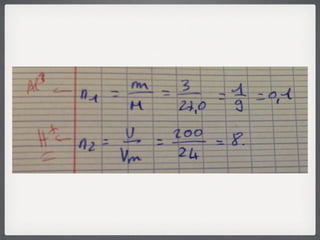 Al³ n₁ = m/M = 3/27,0 = 1/9 = 0,1
H⁺ n₂ = V/Vm = 200/24 = 8.